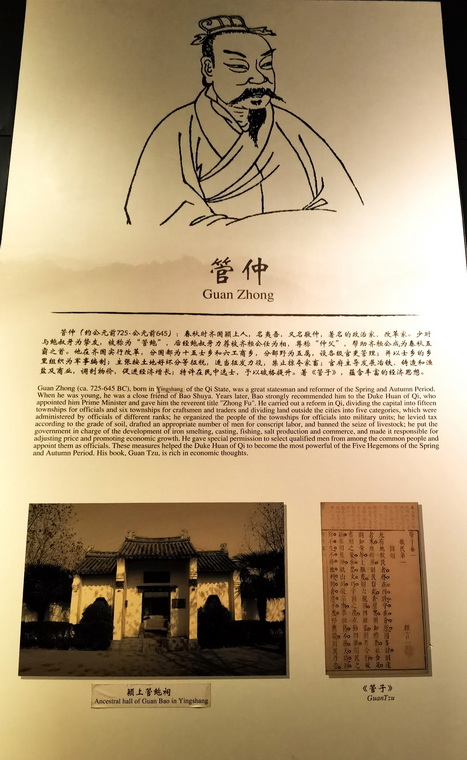 管仲
Guan Zhong
管仲（约公元前725-公元前645）：春秋时齐国颍上人，名夷吾，又名敬仲，著名的政治家、改革家。少时
与鲍叔牙为挚友，被称为“管鲍”，后经鲍叔牙力荐被齐桓公任为相，尊称“仲父”，帮助齐桓公成为春秋五
霸之首。他在齐国实行改革，分国都为十五士乡和六工商乡，分鄙野为五属，设各级官吏管理；并以士乡的乡
里组织为军事编制；主张按土地好坏分等征税，适当征发力役，禁止掠夺家畜；官府主导发展冶铁、铸造和渔
盐及商业，调剂物价，促进经济增长；特许在民中选士，予以破格提升。著《管子》，蕴含丰富的经济思想。
Guan Zhong (ca. 725-645 BC), born in Yingshang of the Qi State, was a great statesman and reformer of the Spring and Autumn Period.
When he was young, he was a close friend of Bao Shuya. Years later, Bao strongly recommended him to the Duke Huan of Qi, who
appointed him Prime Minister and gave him the reverent title "Zhong Fu". He carried out a reform in Qi, dividing the capital into fifteen
townships for officials and six townships for craftmen and traders and dividing land outside the cities into five categories, which were
administered by officials of different ranks; he organized the people of the townships for officials into military units; he levied tax
according to the grade of soil, drafted an appropriate number of men for conscript labor, and banned the seize of livestock; he put the
government in charge of the development of iron smelting, casting, fishing, salt production and commerce, and made it responsible for
adjusting price and promoting economic growth. He gave special permission to select qualified men from among the common people and
appoint them as officials. These measures helped the Duke Huan of Qi to become the most powerful of the Five Hegemons of the Spring
and Autumn Period. His book, Guan Tzu, is rich in economic thoughts.
颍上管鲍祠
Ancestral hall of Guan Bao in Yingshang
《管子》
GuanTzu